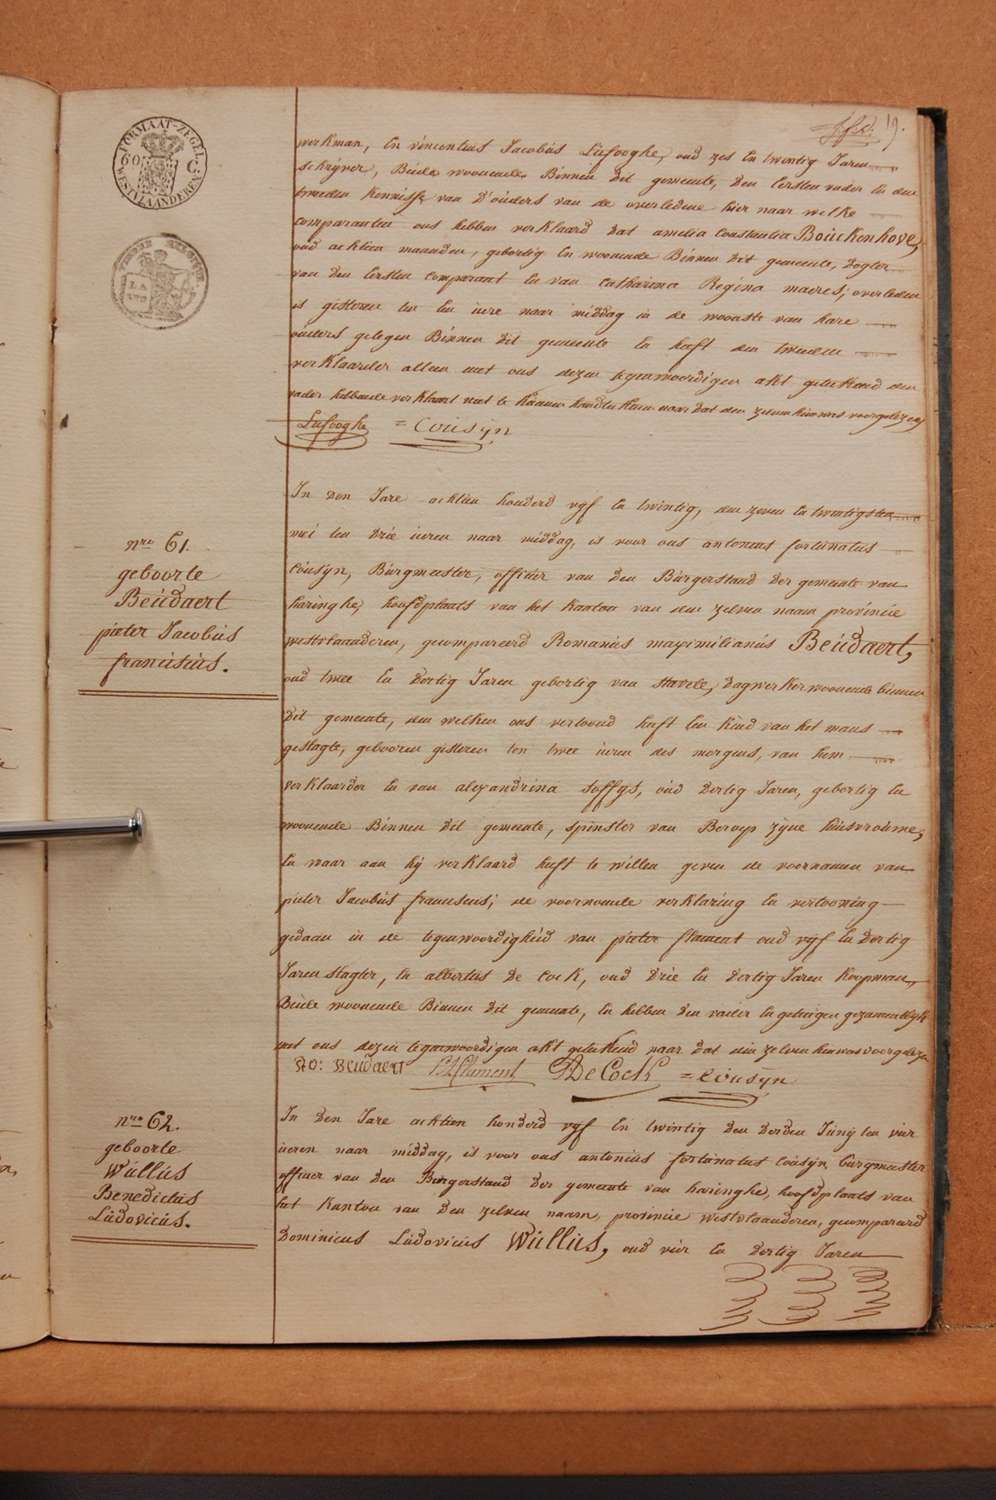 FORMAAT-ZEGEL
60 C
WESTVLAANDEREN
19.
werkman, en vincentius Jacobus Lefooghe, oud zes en twintig Jaren
schryver, Beide woonende Binnen dit gemeente, den eersten vader en den
tweeden kennisse van d'ouders van de overledene hier naar welke
comparanten ons hebben verklaard dat amelia Constantia Bouckenhove,
oud achtien maanden, gebortig en woonende Binnen dit gemeente, dogter
van den eersten comparant en van catharina Regina maeres, overleden
is gisteren ten een ure naar middag in de wooste van hare
ouders gelegen Binnen dit gemeente en heeft den tweeden
verklaarder alleen met ons dezen tegenwoordigen akt geteekend den
vader hebbende verklaart niet te kunnen handteekenen naar dat den zelven hun was voorgelezen
Lefooghe = Cousyn
nro 61.
geboorte
Beudaert
pieter Jacobus
fransisus.
In den Jare achtien honderd vyf en twintig, den zeven en twintigsten
mei ten drie uren naar middag, is voor ons antonius fortunatus
Cousyn, Burgmeester, officier van den Burgerstand der gemeente van
haringhe, hoofdplaats van het kanton van den zelven naam provincie
westvlaanderen, gecompareerd Romanus maximilianus Beudaert,
oud twee en dertig Jaren gebortig van Stavele, dagwerker woonende binnen
dit gemeente, den welken ons vertoond heeft een kind van het mans
geslagte, gebooren gisteren ten twee uren des morgens, van hem
verklaarder en van alexandrina Soffys, oud dertig Jaren, gebortig en
woonende Binnen dit gemeente, spinster van Beroep zyne huisvrouwe,
en waar aan hy verklaard heeft te willen geven de voornamen van
pieter Jacobus franciscus; de voornoemde verklaring en vertooning
gedaan in de tegenwoordigheid van pieter flament oud vyf en dertig
Jaren slagter, en albertus De Cock, oud drie en dertig Jaren koopman,
Beide woonende Binnen dit gemeente, en hebben den vader en getuigen gezamentlyk
met ons dezen tegenwoordigen akt geteekend naar dat den zelven hun was voorgelezen
Ro: Beudaert P Flament A De Cock = Cousyn
nro 62.
geboorte
Wullus
Benedictus
Ludovicus.
In den Jare achtien honderd vyf en twintig den derden Junij ten vier
uren naar middag, is voor ons antonius fortunatus cousyn burgmeester
officier van den Burgerstand der gemeente van haringhe, hoofdplaats van
het kanton van den zelven naam, provincie westvlaanderen, gecompareerd
Dominicus Ludovicus Wullus, oud vier en dertig Jaren